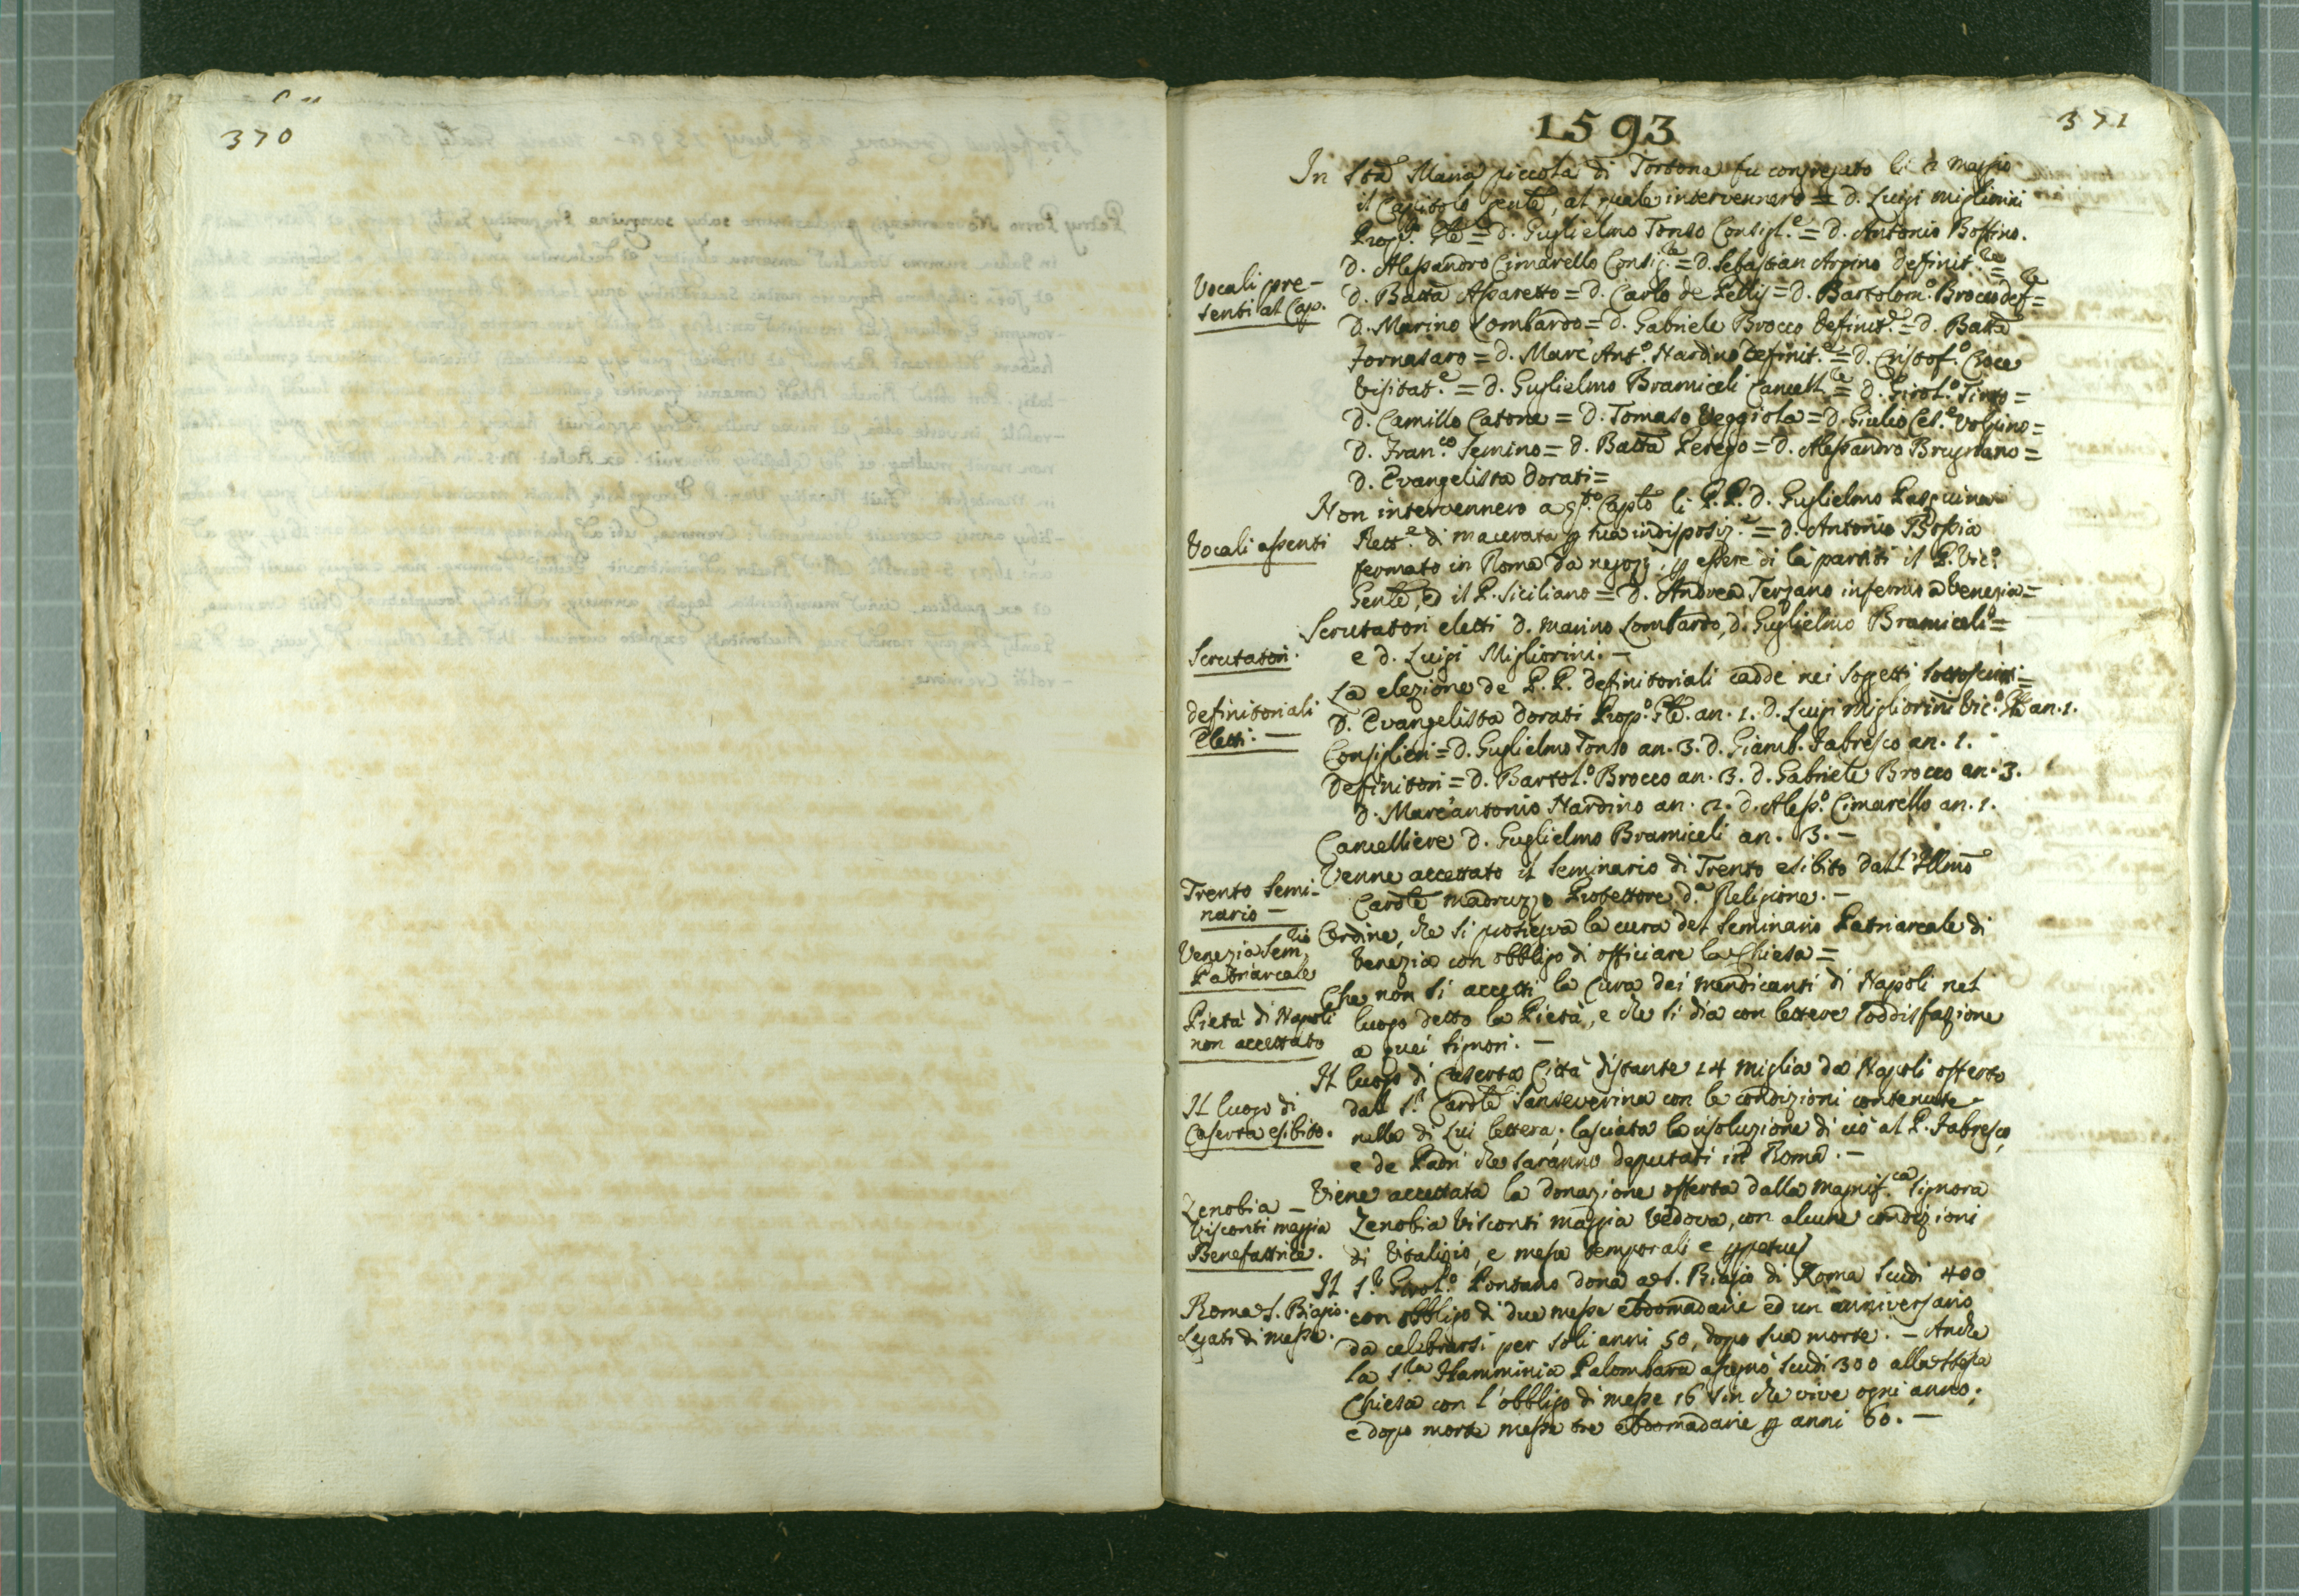 370
371
1593
In Sta Maria piccola di Tortona fu congregato li 2 maggio
il Capitolo gentle, al quale intervennero = D. Luigi Migliorini
Propto. Gle = D. Guglielmo Tonso Consigl.e = D. Antonio Bossino.
Vocali pre-
senti al Cap.
D. Alessandro Cimarello Consig.re = D. Sebastian Arpino definit.re =
D. Batta Assaretto = D. Carlo de Pellis = D. Bartolom.o Brocco def.re =
D. Marino Lombardo = D. Gabriele Brocco definit.e = D. Batta
fornasaro = D. Marc'Ant.o Nardino definit.e = D. Cristof.o Croce
Visitat.e = D. Guglielmo Bramiceli Cancell.re = D. Girol.o Tinto =
D. Camillo Catone = D. Tomaso Veggiola = D. Giulio Ces.e Volpino =
D. Fran.co Semino = D. Batta Perego = D. Alessandro Brugnano =
D. Evangelista Dorati =
Vocali assenti
Non intervennero a q.to Capto li P.P. D. Guglielmo Pasquino
Rett.e di macerata p sua indisposiz.e = D. Antonio Bossia
fermato in Roma da negozj, p essere di là partiti il P. Vic.o
Genle, ed il P. Siciliano = D. Andrea Terzano infermo a Venezia =
Scrutatori.
Scrutatori eletti D. Marino Lombardo, D. Guglielmo Bramiceli =
e D. Luigi Migliorini. -
definitoriali
Eletti. -
La elezione de P.P. definitoriali cadde nei soggetti sottoscritti =
D. Evangelista Dorati Prop.o Gle. an. 1. D. Luigi Migliorini Vic.o Gle an. 1.
Consiglieri = D. Guglielmo Tonso an. 3. D. Giamb. Fabresco an. 1.
Definitori = D. Bartol.o Brocco an. 3. D. Gabriele Brocco an. 3.
D. Marc'antonio Nardino an. 2. D. Aless.o Cimarello an. 1.
Cancelliere D. Guglielmo Bramiceli an. 3. -
Trento Semi-
nario -
Venne accettato il Seminario di Trento esibito dall'Illmo
Cardle madruzzo Protettore d.a Religione. -
Venezia Sem.rio
Patriarcale
Ordine, che si prosiegva la cura del Seminario Patriarcale di
Venezia con obbligo di officiare la Chiesa =
Pietà di Napoli
non accettato
Che non si accetti la Cura dei mendicanti di Napoli nel
luogo detto la Pietà, e che si dia con lettere soddisfazione
a quei signori. -
Il luogo di
Caserta esibito.
Il luogo di Caserta Città distante 14 miglia da Napoli offerto
dall S.r Cardle Sanseverina con le condizioni contenute
nella di lui lettera; lasciata la risoluzione di ciò al P. Fabresco,
e de Padri che saranno deputati in Roma. -
Zenobia -
Visconti maggia
Benefattrice.
Viene accettata la donazione offerta dalla Magnif.ca Signora
Zenobia Visconti maggia Vedova, con alcune condizioni
di Vitalizio, e messe temporali e ppetue
Roma S. Biagio.
Legati di messe.
Il S.r Girol.o Pontano dona a S. Biagio di Roma scudi 400
con obbligo di due messe ebdomadarie ed un anniversario
da celebrarsi per soli anni 50, dopo sua morte. - Anche
la S.ra Flamminia Palombara assegnò scudi 300 alla stessa
Chiesa con l'obbligo di messe 16 sin che vive ogni anno;
e dopo morte messe tre ebdomadarie p anni 60. -